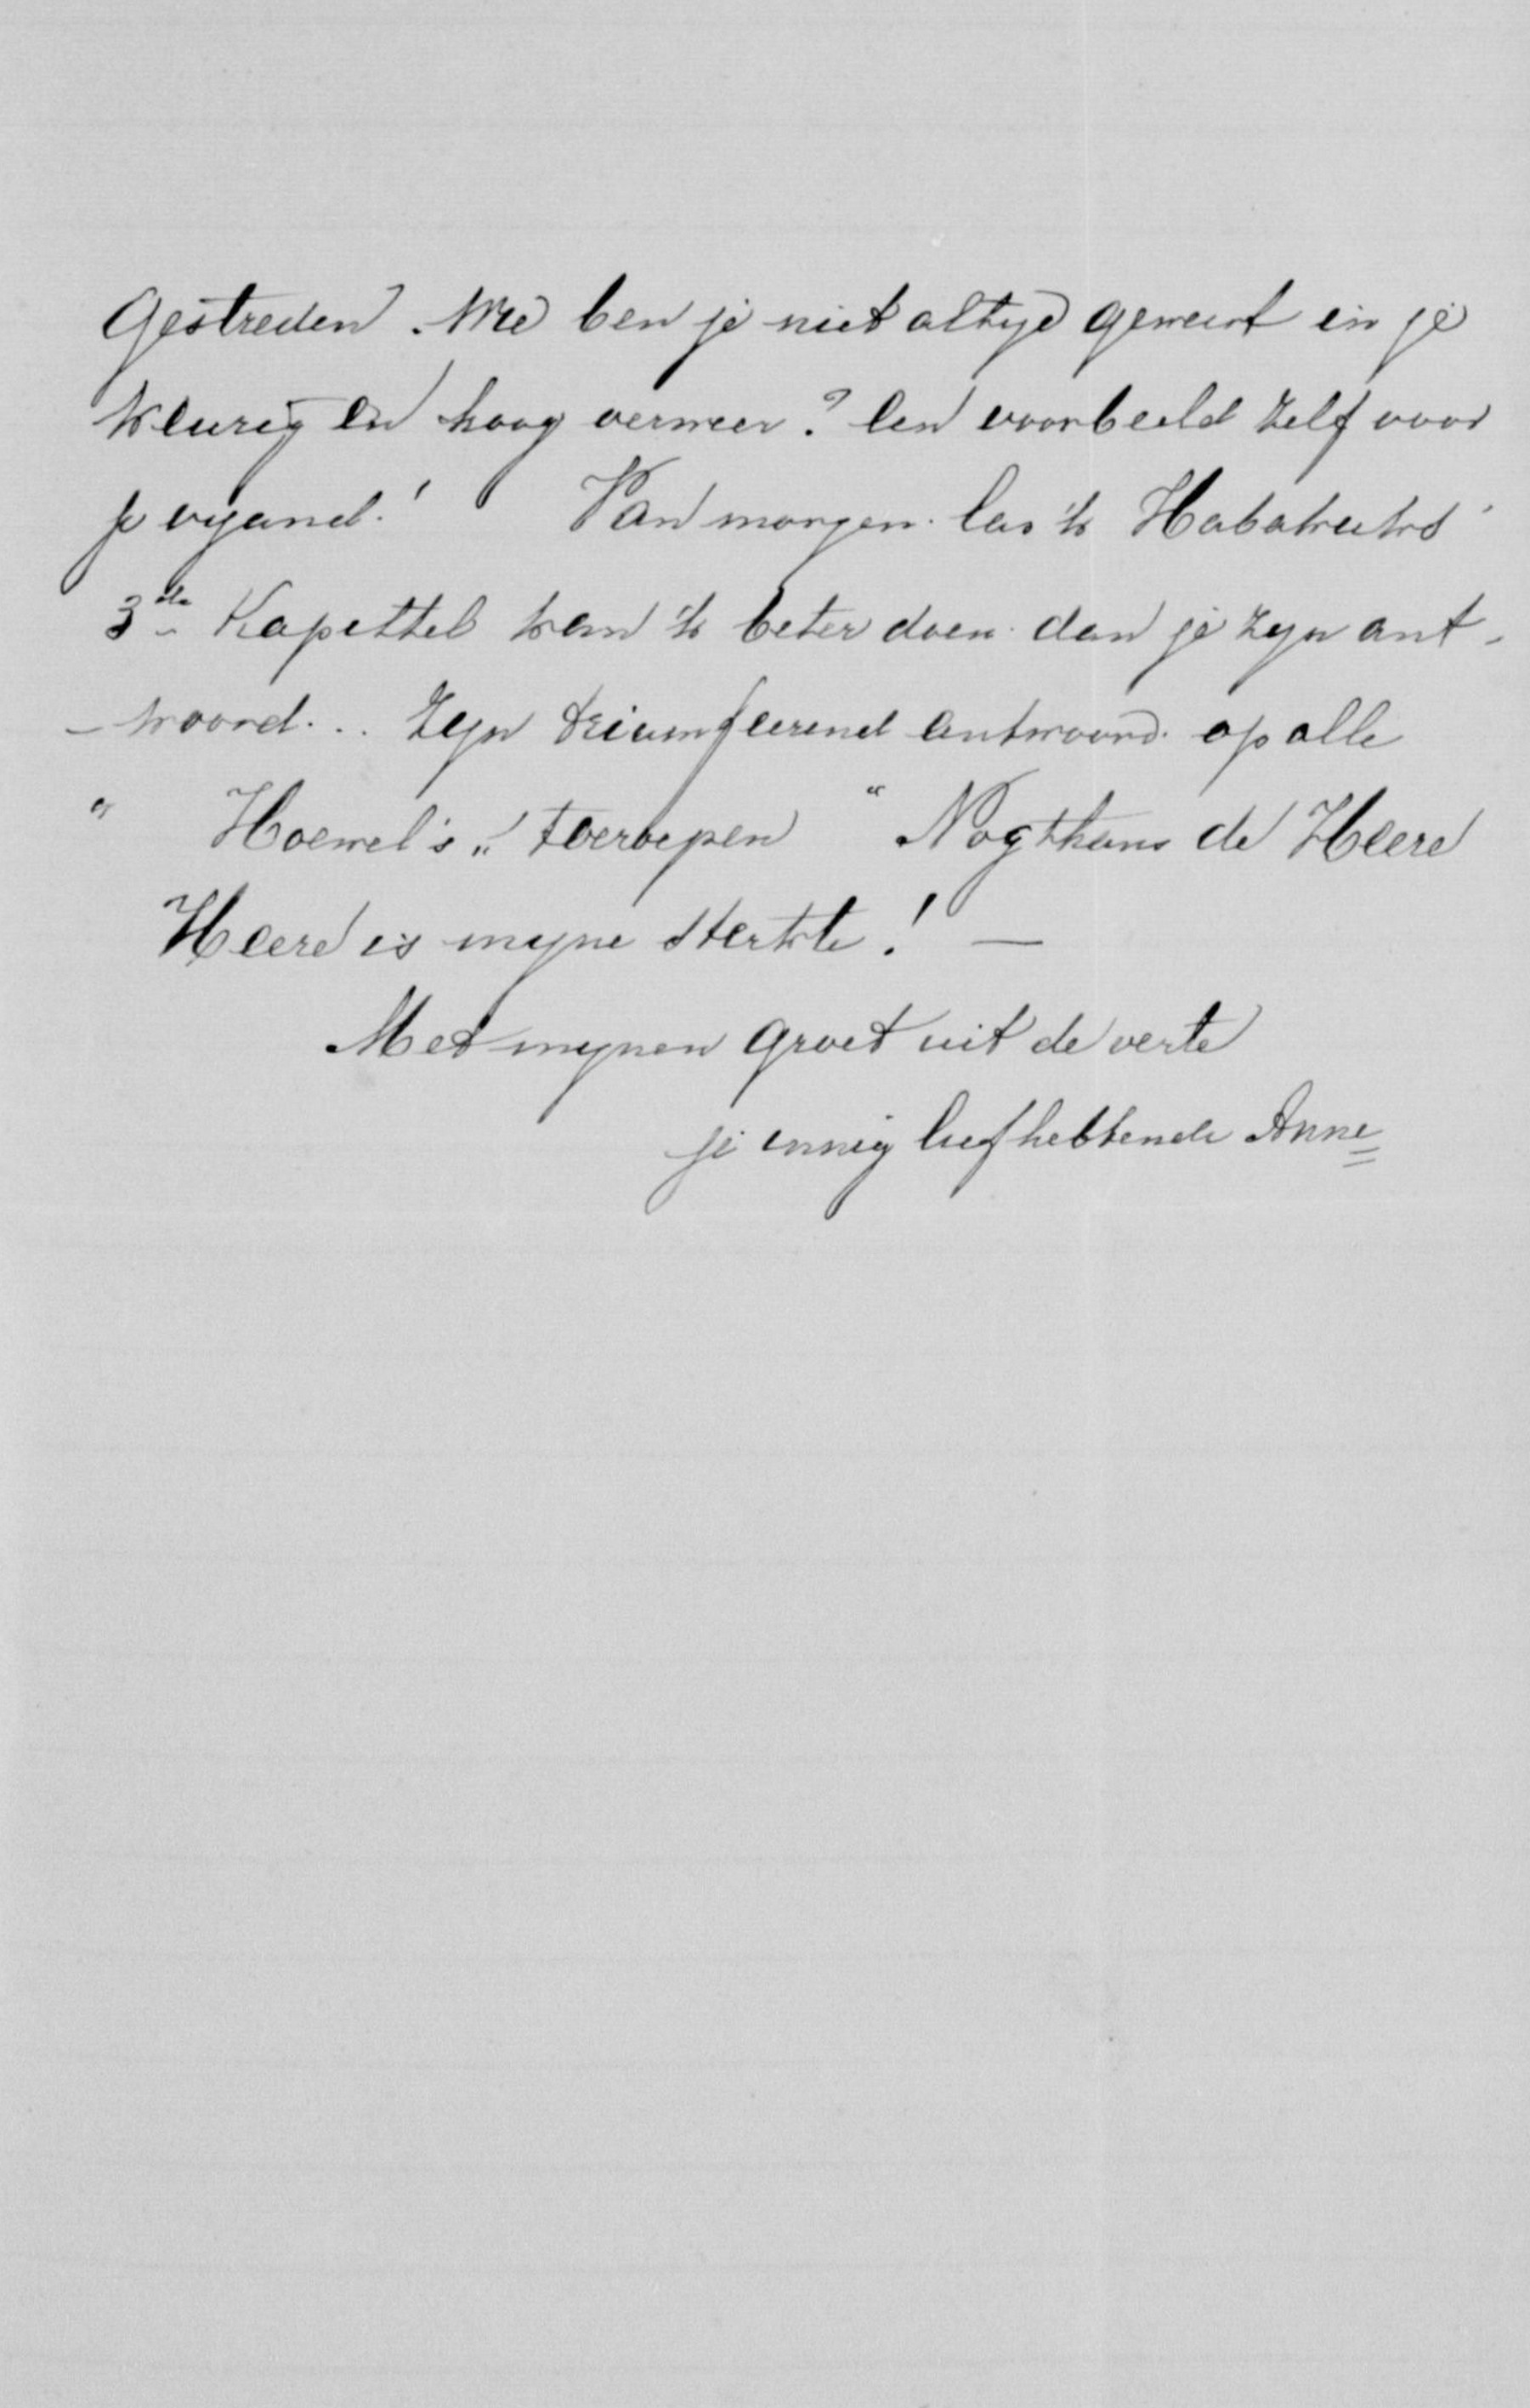 Gestreden. Wie ben je niet altyd geweest in je
keurig en hoog verweer? Een voorbeeld zelf voor
je vyand!   Van morgen las 'k Habakuks'
3de Kapittel kan 'k beter doen dan je zyn ant-
-woord... Zyn triumfeerend antwoord op alle
" Hoewel's " toeroepen " Nogthans de Heere
Heere is myne sterkte! —
Met mynen groet uit de verte
je innig liefhebbende Anne